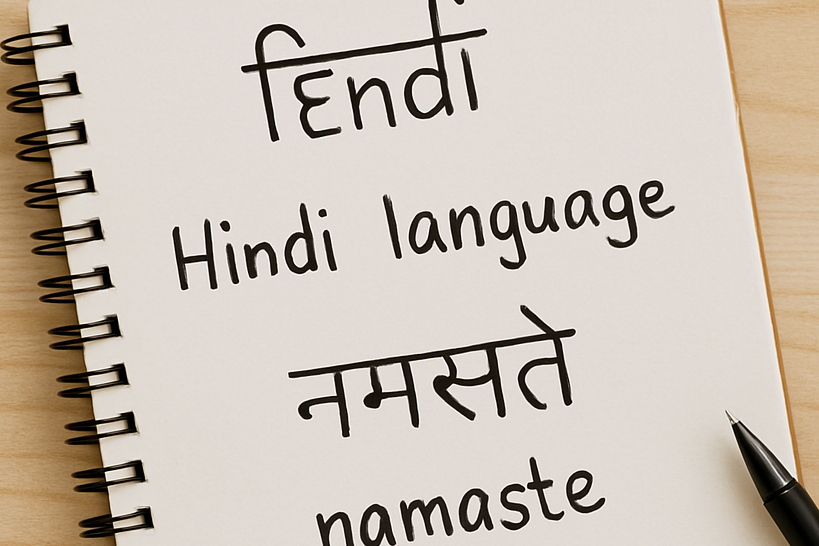 Hindi language
नमसते
namaste